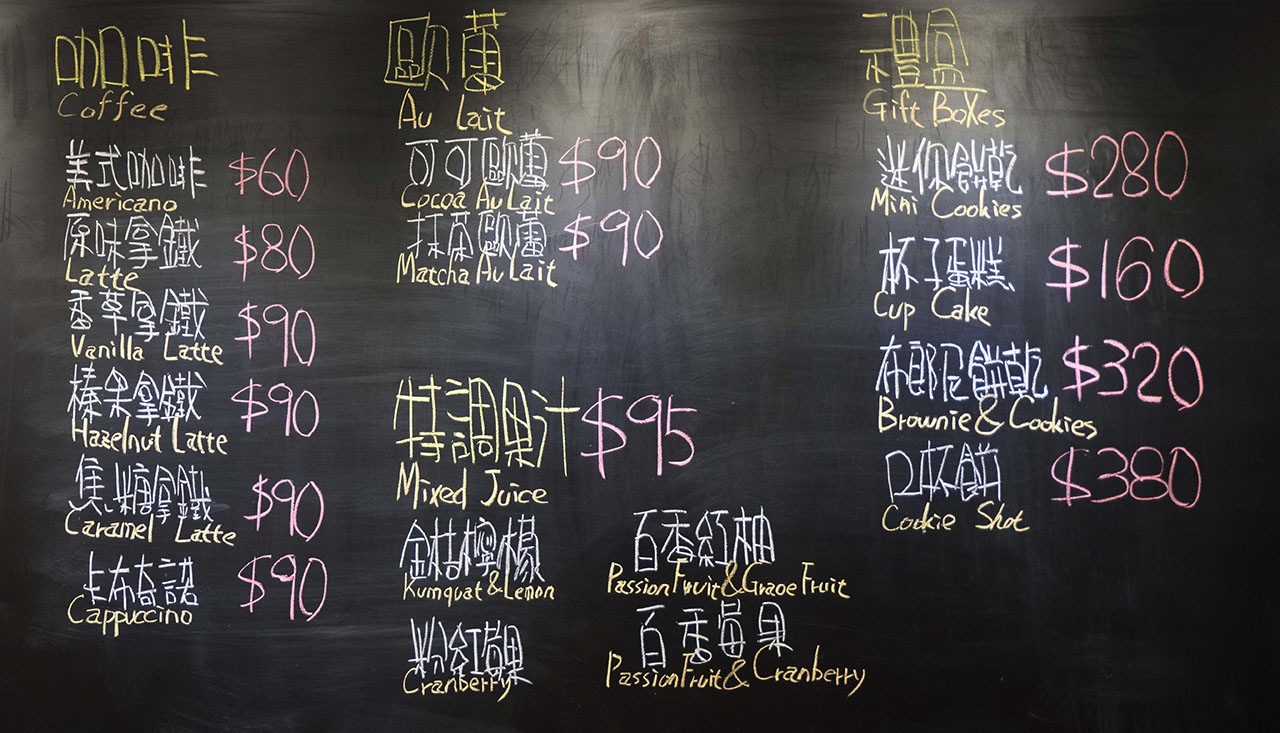 咖啡
Coffee
美式咖啡 $60
Americano
原味拿鐵 $80
Latte
香草拿鐵 $90
Vanilla Latte
榛果拿鐵 $90
Hazelnut Latte
焦糖拿鐵 $90
Caramel Latte
卡布奇諾 $90
Cappuccino
歐蕾
Au Lait
可可歐蕾 $90
Cocoa Au Lait
抹茶歐蕾 $90
Matcha Au Lait
特調果汁 $95
Mixed Juice
金桔檸檬
Kumquat & Lemon
百香紅柚
Passion Fruit & Grape Fruit
粉紅莓果
Cranberry
百香莓果
Passion Fruit & Cranberry
禮盒
Gift Boxes
迷你餅乾 $280
Mini Cookies
杯子蛋糕 $160
Cup Cake
布郎尼餅乾 $320
Brownie & Cookies
口杯餅 $380
Cookie Shot